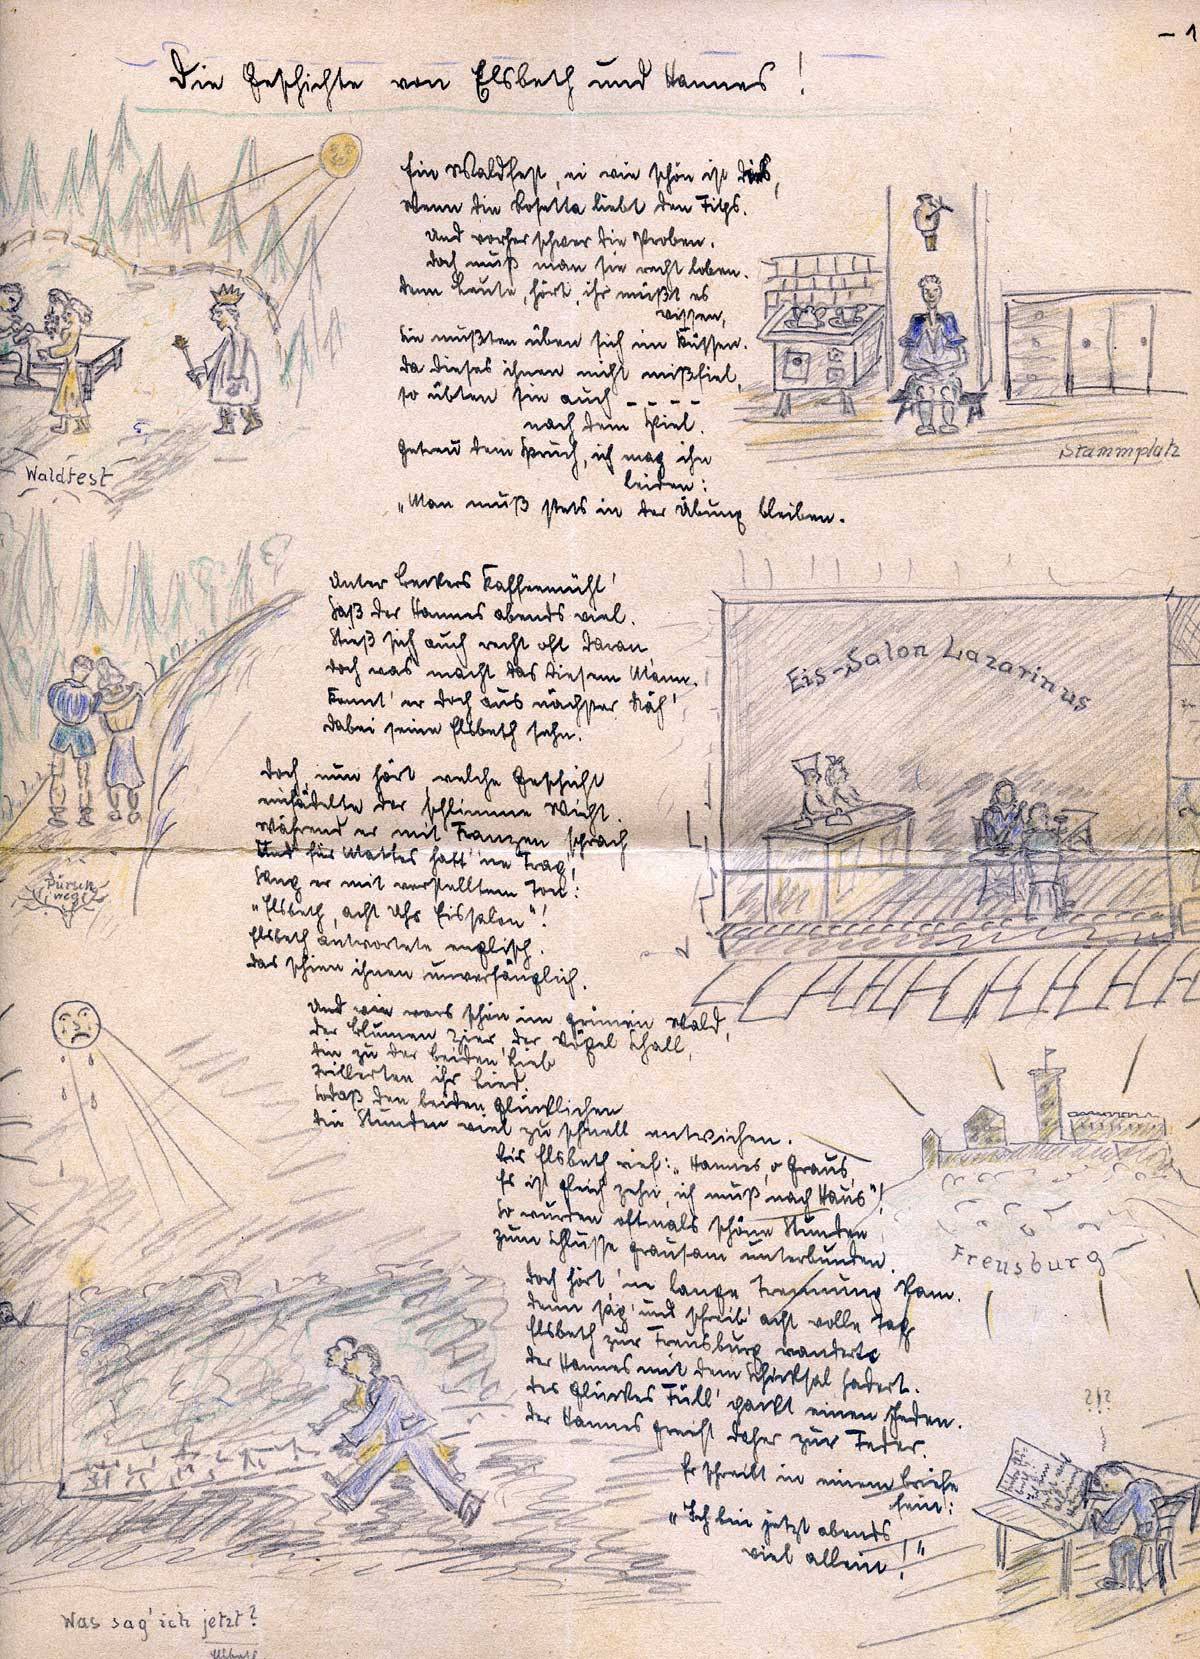 - 1
Die Geschichte von Elsbeth und Hannes!
Ein Waldfest, ei wie schön ist dies,
Wenn die Rosetta liebt den Fips.
Und vorher schwer die Proben.
Doch muß man sie recht loben.
Denn Leute, hört, ihr müßt es
wissen,
Sie mußten üben sich im Küssen.
Da dieses ihnen nicht mißfiel,
so übten sie auch - - - -
nach dem Spiel.
Getreu dem Spruch, ich mag ihn
leiden:
„Man muß stets in der Übung bleiben.
Waldfest
Stammplatz
Unter Beckers Kaffeemühl'
Saß der Hannes abends viel.
Stieß sich auch recht oft daran
Doch was macht das diesem Mann.
Konnt' er doch aus nächster Näh'
Dabei seine Elsbeth sehn.
Eis-Salon Lazarinus
Doch nun hört, welche Geschicht
einfädelte der schlimme Wicht.
Während er mit Franzen sprach
Und für Mattes hatt' 'ne Frag',
Sang er mit verstelltem Ton:
„Elsbeth, acht Uhr Eissalon"!
Elsbeth antwortete englisch.
Das schien ihnen unverfänglich.
Pürsch
weg
Und wie wars schön im grünen Wald,
Der Blumen Zier, der Vögel Schall,
Die zu der beiden Lieb
Trillerten ihr Lied.
Sodaß den beiden Glücklichen
Die Stunden viel zu schnell entwichen.
Bis Elsbeth rief: „Hannes, o Graus,
Es ist gleich zehn, ich muß nach Haus"!
So wurden oftmals schöne Stunden
Zum Schlusse grausam unterbunden.
Freusburg
Doch hört 'ne lange Trennung kam.
Denn sag' und schreib' acht volle Tag
Elsbeth zur Freusburg wandert
Der Hannes mit dem Schicksal hadert.
Des Glückes Füll' packt einen Jeden.
Der Hannes greift daher zur Feder.
Er schreibt in einem Briefe
fein:
„Ich bin jetzt abends
viel allein!"
?!?
Was sag' ich jetzt?